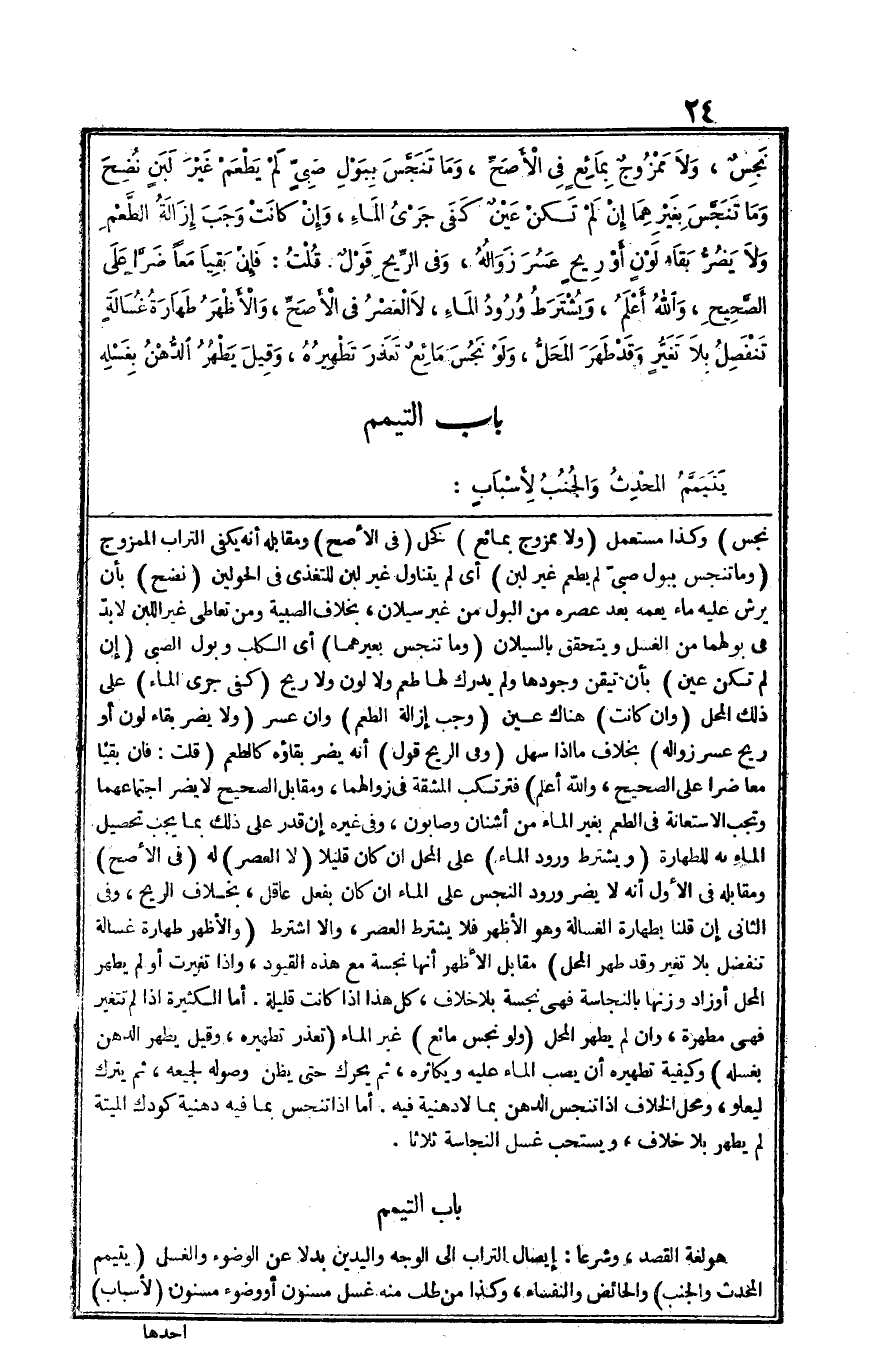 ٢٤
نَجِسٌ ، وَلاَ مَمْزُوجٌ بِمَائِعٍ فِى الْأَصَحِّ ، وَمَا تَنَجَّسَ بِبَوْلِ صَبِيٍّ لَمْ يَطْعَمْ غَيْرَ لَبَنٍ نُضِحَ
وَمَا تَنَجَّسَ بِغَيْرِهِمَا إِنْ لَمْ تَكُنْ عَيْنٌ كَفَى جَرْىُ المَاءِ ، وَإِنْ كَانَتْ وَجَبَ إِزَالَةُ الطَّعْمِ
وَلاَ يَضُرُّ بَقَاءُ لَوْنٍ أَوْ رِيحٍ عَسُرَ زَوَالُهُ ، وَفِى الرِّيحِ قَوْلٌ . قُلْتُ : فَإِنْ بَقِيَا مَعاً ضَرَّا عَلَى
الصَّحِيحِ ، وَاللهُ أَعْلَمُ ، وَيُشْتَرَطُ وُرُودُ المَاءِ ، لاَ الْعَصْرُ فِى الْأَصَحِّ ، وَالْأَظْهَرُ طَهَارَةُ غُسَالَةٍ
تَنْفَصِلُ بِلاَ تَغَيُّرٍ وَقَدْ طَهَرَ المَحَلُّ ، وَلَوْ نَجُسَ مَائِعٌ تَعَذَّرَ تَطْهِيرُهُ ، وَقِيلَ يَطْهُرُ الدُّهْنُ بِغَسْلِهِ
باب التيمم
يَتَيَمَّمُ المُحْدِثُ وَالْجُنُبُ لِأَسْبَابٍ :
نجس ) وكذا مستعمل ( ولا ممزوج بمائع ) كخل ( فى الأصح ) ومقابله أنه يكفى التراب الممزوج
( وما تنجس ببول صبىّ لم يطعم غير لبن ) أى لم يتناول غير لبن للتغذى فى الحولين ( نضح ) بأن
يرش عليه ماء يعمه بعد عصره من البول من غير سيلان ، بخلاف الصبية ومن تعاطى غير اللبن لابدّ
فى بولهما من الغسل ويتحقق بالسيلان ( وما تنجس بغيرهما ) أى الكلب وبول الصبى ( إن
لم تكن عين ) بأن تيقن وجودها ولم يدرك لها طعم ولا لون ولا ريح ( كفى جرى الماء ) على
ذلك المحل ( وان كانت ) هناك عين ( وجب إزالة الطعم ) وان عسر ( ولا يضر بقاء لون أو
ريح عسر زواله ) بخلاف ما اذا سهل ( وفى الريح قول ) أنه يضر بقاؤه كالطعم ( قلت : فان بقيا
معا ضرا على الصحيح ، والله أعلم ) فترتكب المشقة فى زوالهما ، ومقابل الصحيح لا يضر اجتماعهما
وتجب الاستعانة فى الطعم بغير الماء من أشنان وصابون ، وفى غيره إن قدر على ذلك بما يجب تحصيل
الماء به للطهارة ( ويشترط ورود الماء ) على المحل ان كان قليلا ( لا العصر ) له ( فى الأصح )
ومقابله فى الأول أنه لا يضر ورود النجس على الماء ان كان بفعل عاقل ، بخلاف الريح ، وفى
الثانى إن قلنا بطهارة الغسالة وهو الأظهر فلا يشترط العصر ، والا اشترط ( والأظهر طهارة غسالة
تنفصل بلا تغير وقد طهر المحل ) مقابل الأظهر أنها نجسة مع هذه القيود ، واذا تغيرت أو لم يطهر
المحل أوزاد وزنها بالنجاسة فهى نجسة بلا خلاف ، كل هذا اذا كانت قليلة . أما الكثيرة اذا لم تتغير
فهى مطهرة ، وان لم يطهر المحل ( ولو نجس مائع ) غير الماء ( تعذر تطهيره ، وقيل يطهر الدهن
بغسله ) وكيفية تطهيره أن يصب الماء عليه ويكاثره ، ثم يحرك حتى يظن وصوله لجميعه ، ثم يترك
ليعلو ، ومحل الخلاف اذا تنجس الدهن بما لا دهنية فيه . أما اذا تنجس بما فيه دهنية كودك الميتة
لم يطهر بلا خلاف ، ويستحب غسل النجاسة ثلاثا .
باب التيمم
هو لغة القصد ، وشرعا : إيصال التراب الى الوجه واليدين بدلا عن الوضوء والغسل ( يتيمم
المحدث والجنب ) والحائض والنفساء ، وكذا من طلب منه غسل مسنون أو وضوء مسنون ( لأسباب )
احدها